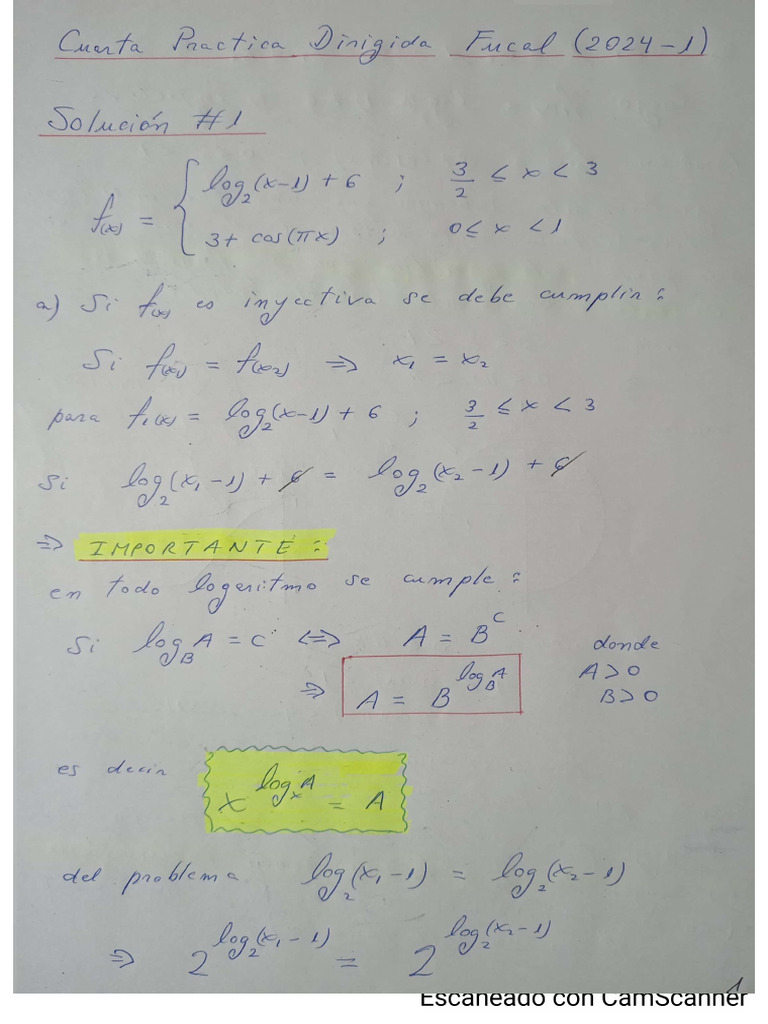 Cuarta Practica Dirigida Fucal (2024-1)
Solución #1
f(x) = { log₂(x-1) + 6 ; 3/2 ≤ x < 3
3 + cos(πx) ; 0 ≤ x < 1
a) Si f(x) es inyectiva se debe cumplir:
Si f(x₁) = f(x₂) ⇒ x₁ = x₂
para f₁(x) = log₂(x-1) + 6 ; 3/2 ≤ x < 3
Si log₂(x₁-1) + 6 = log₂(x₂-1) + 6
⇒ IMPORTANTE:
en todo logaritmo se cumple:
Si log_B A = C ⇔ A = B^C donde
⇒ A = B^(log_B A) A>0
B>0
es decir x^(log_x A) = A
del problema log₂(x₁-1) = log₂(x₂-1)
⇒ 2^(log₂(x₁-1)) = 2^(log₂(x₂-1))
1
Escaneado con CamScanner